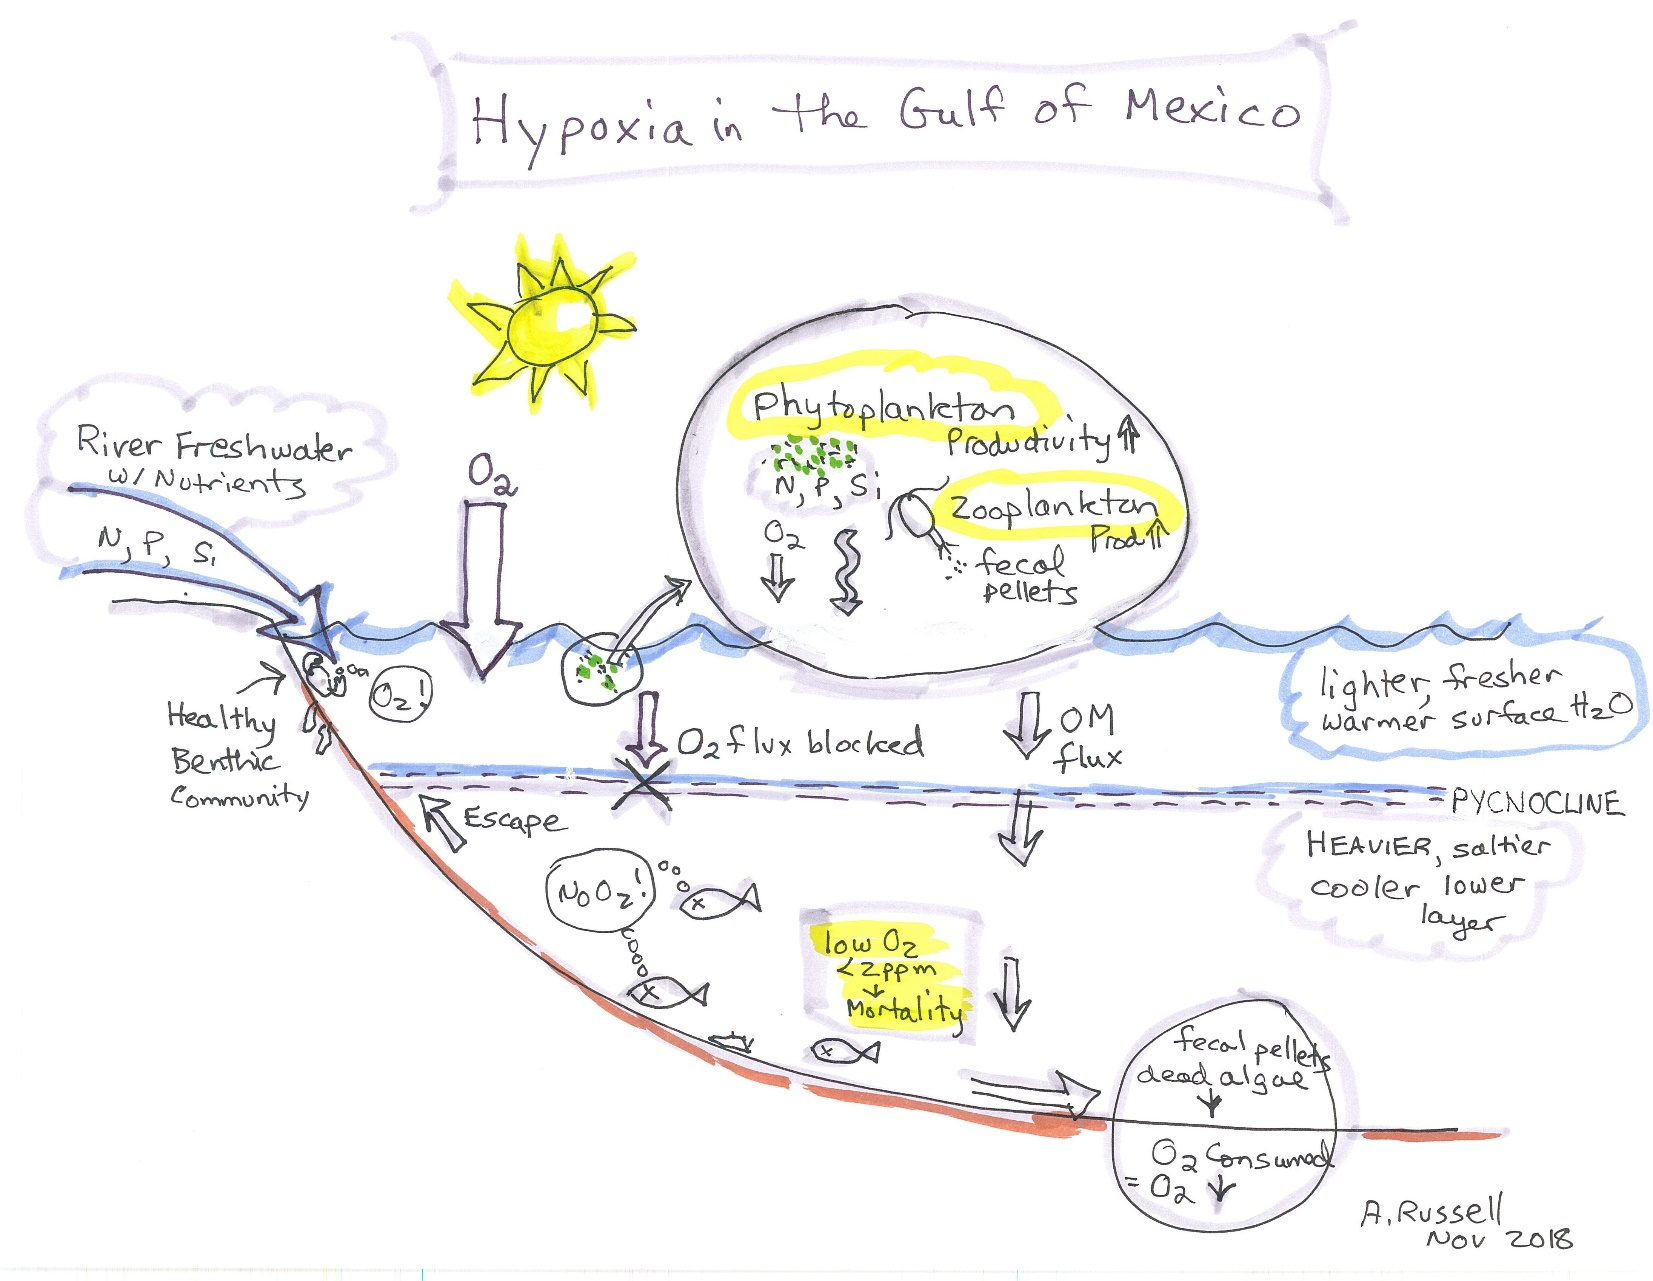 Hypoxia in the Gulf of Mexico
River Freshwater
w/ Nutrients
N, P, Si
O2
Phytoplankton
Productivity ↑
N, P, Si
Zooplankton
Prod ↑
O2
fecal
pellets
Healthy
Benthic
Community
O2!
O2 flux blocked
OM
flux
lighter, fresher
warmer surface H2O
PYCNOCLINE
HEAVIER, saltier
cooler lower
layer
Escape
No O2!
low O2
<2ppm
↓
Mortality
fecal pellets
dead algae
↓
O2 Consumed
= O2 ↓
A. Russell
Nov 2018